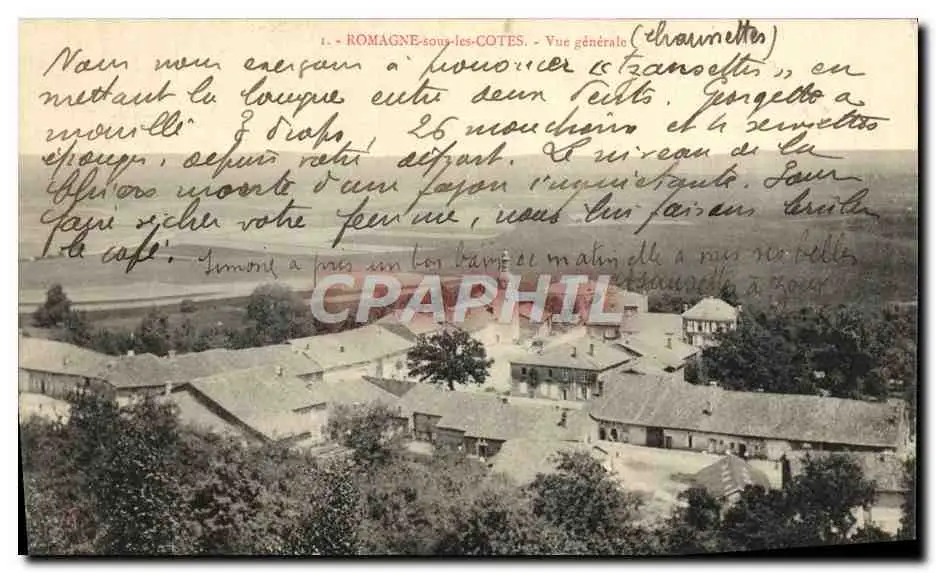 1. - ROMAGNE-sous-les-COTES. - Vue générale (chaussettes)
Nous nous exerçons à prononcer "tzansettes" en
mettant la langue entre deux dents. Georgette a
mouillé 7 draps, 26 mouchoirs et 4 serviettes
éponges, depuis votre départ. Le niveau de la
monte d'une façon inquiétante. Pour
faire sécher votre femme, nous lui faisons brûler
le café.
Simone a pris un bon bain ce matin elle a mis ses belles
à jour
CPARAMA